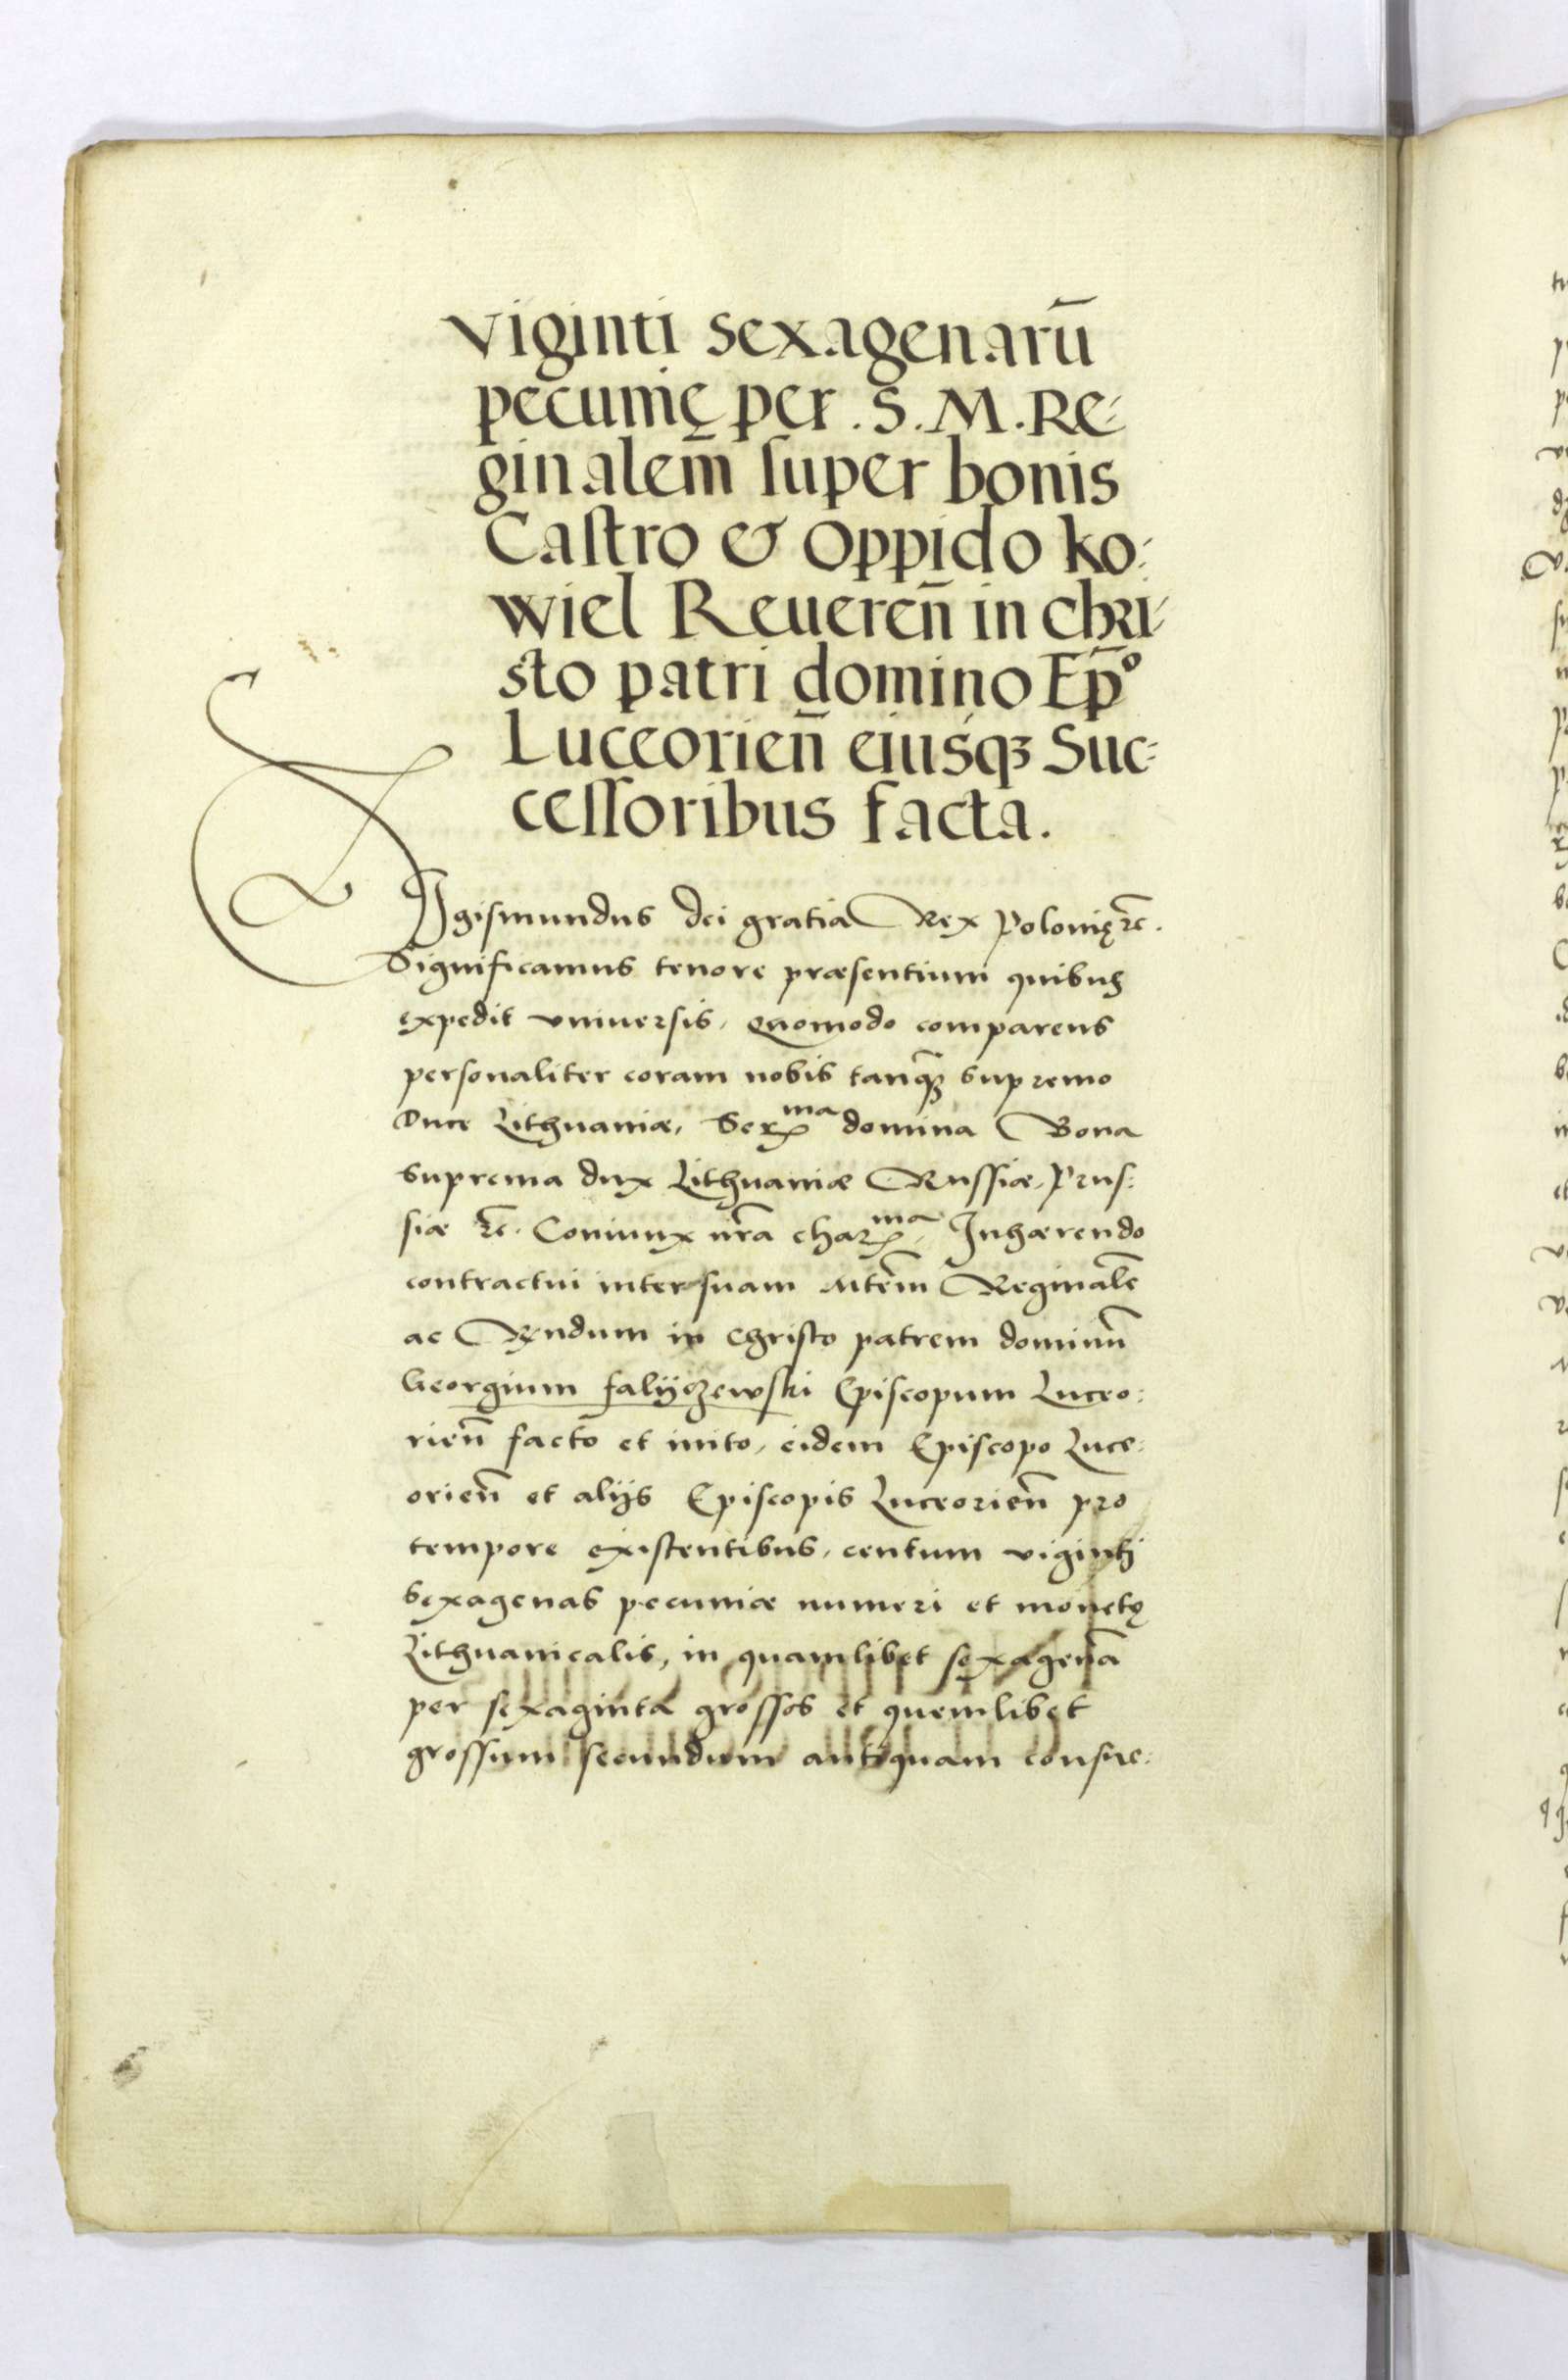 Viginti sexagenarū
pecunię per . S. M. Re-
ginalem̄ super bonis
Castro & Oppido Ko:
wiel Reueren̄ in Chri-
sto patri domino Ep̄º
Luceorien̄ eiusqꝫ Suc-
cessoribus facta.
Sigismundus dei gratia Rex Polonię ꝛc̄.
Significamus tenore præsentium quibus
expedit vniuersis, quomodo comparens
personaliter coram nobis tanq̄ꝫ supremo
Duce Lithuaniæ, Serᵐᵃ domina Bona
suprema dux Lithuaniæ Russiæ, Prus:
siæ ꝛc̄. Coniunx nr̄a charᵐᵃ, Inhærendo
contractui inter suam Mtem̄ Reginalē
ac Rn̄dum in Christo patrem dominū
Georgium falijczewski Episcopum Luceo:
rien̄ facto et inito, eidem Episcopo Luce:
orien̄ et alijs Episcopis Luceorien̄ pro
tempore existentibus, centum viginti
sexagenas pecuniæ numeri et monetę
Lithuanicalis, in quamlibet sexagenā
per sexaginta grossos et quemlibet
grossum secundum antiquam consue: